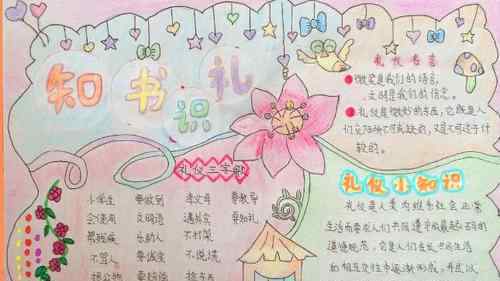 知书识礼
礼仪名言
微笑是我们的语言，
文明是我们的信念。
礼仪是微妙的东西，它既是人
们交际所不可或缺的，又是不可过于计
较的。
礼仪三字歌
小学生 要做到 孝父母 尊教导
会使用 文明语 遇外宾 要知礼
帮残疾 乐助人 不打架
不骂人 要诚实 不说谎
损公物 要
礼仪小知识
礼仪是人类为维系社会正常
生活而要求人们共同遵守的最起码的
道德规范，它是人们在长期共同生活
和相互交往中逐渐形成，并且以